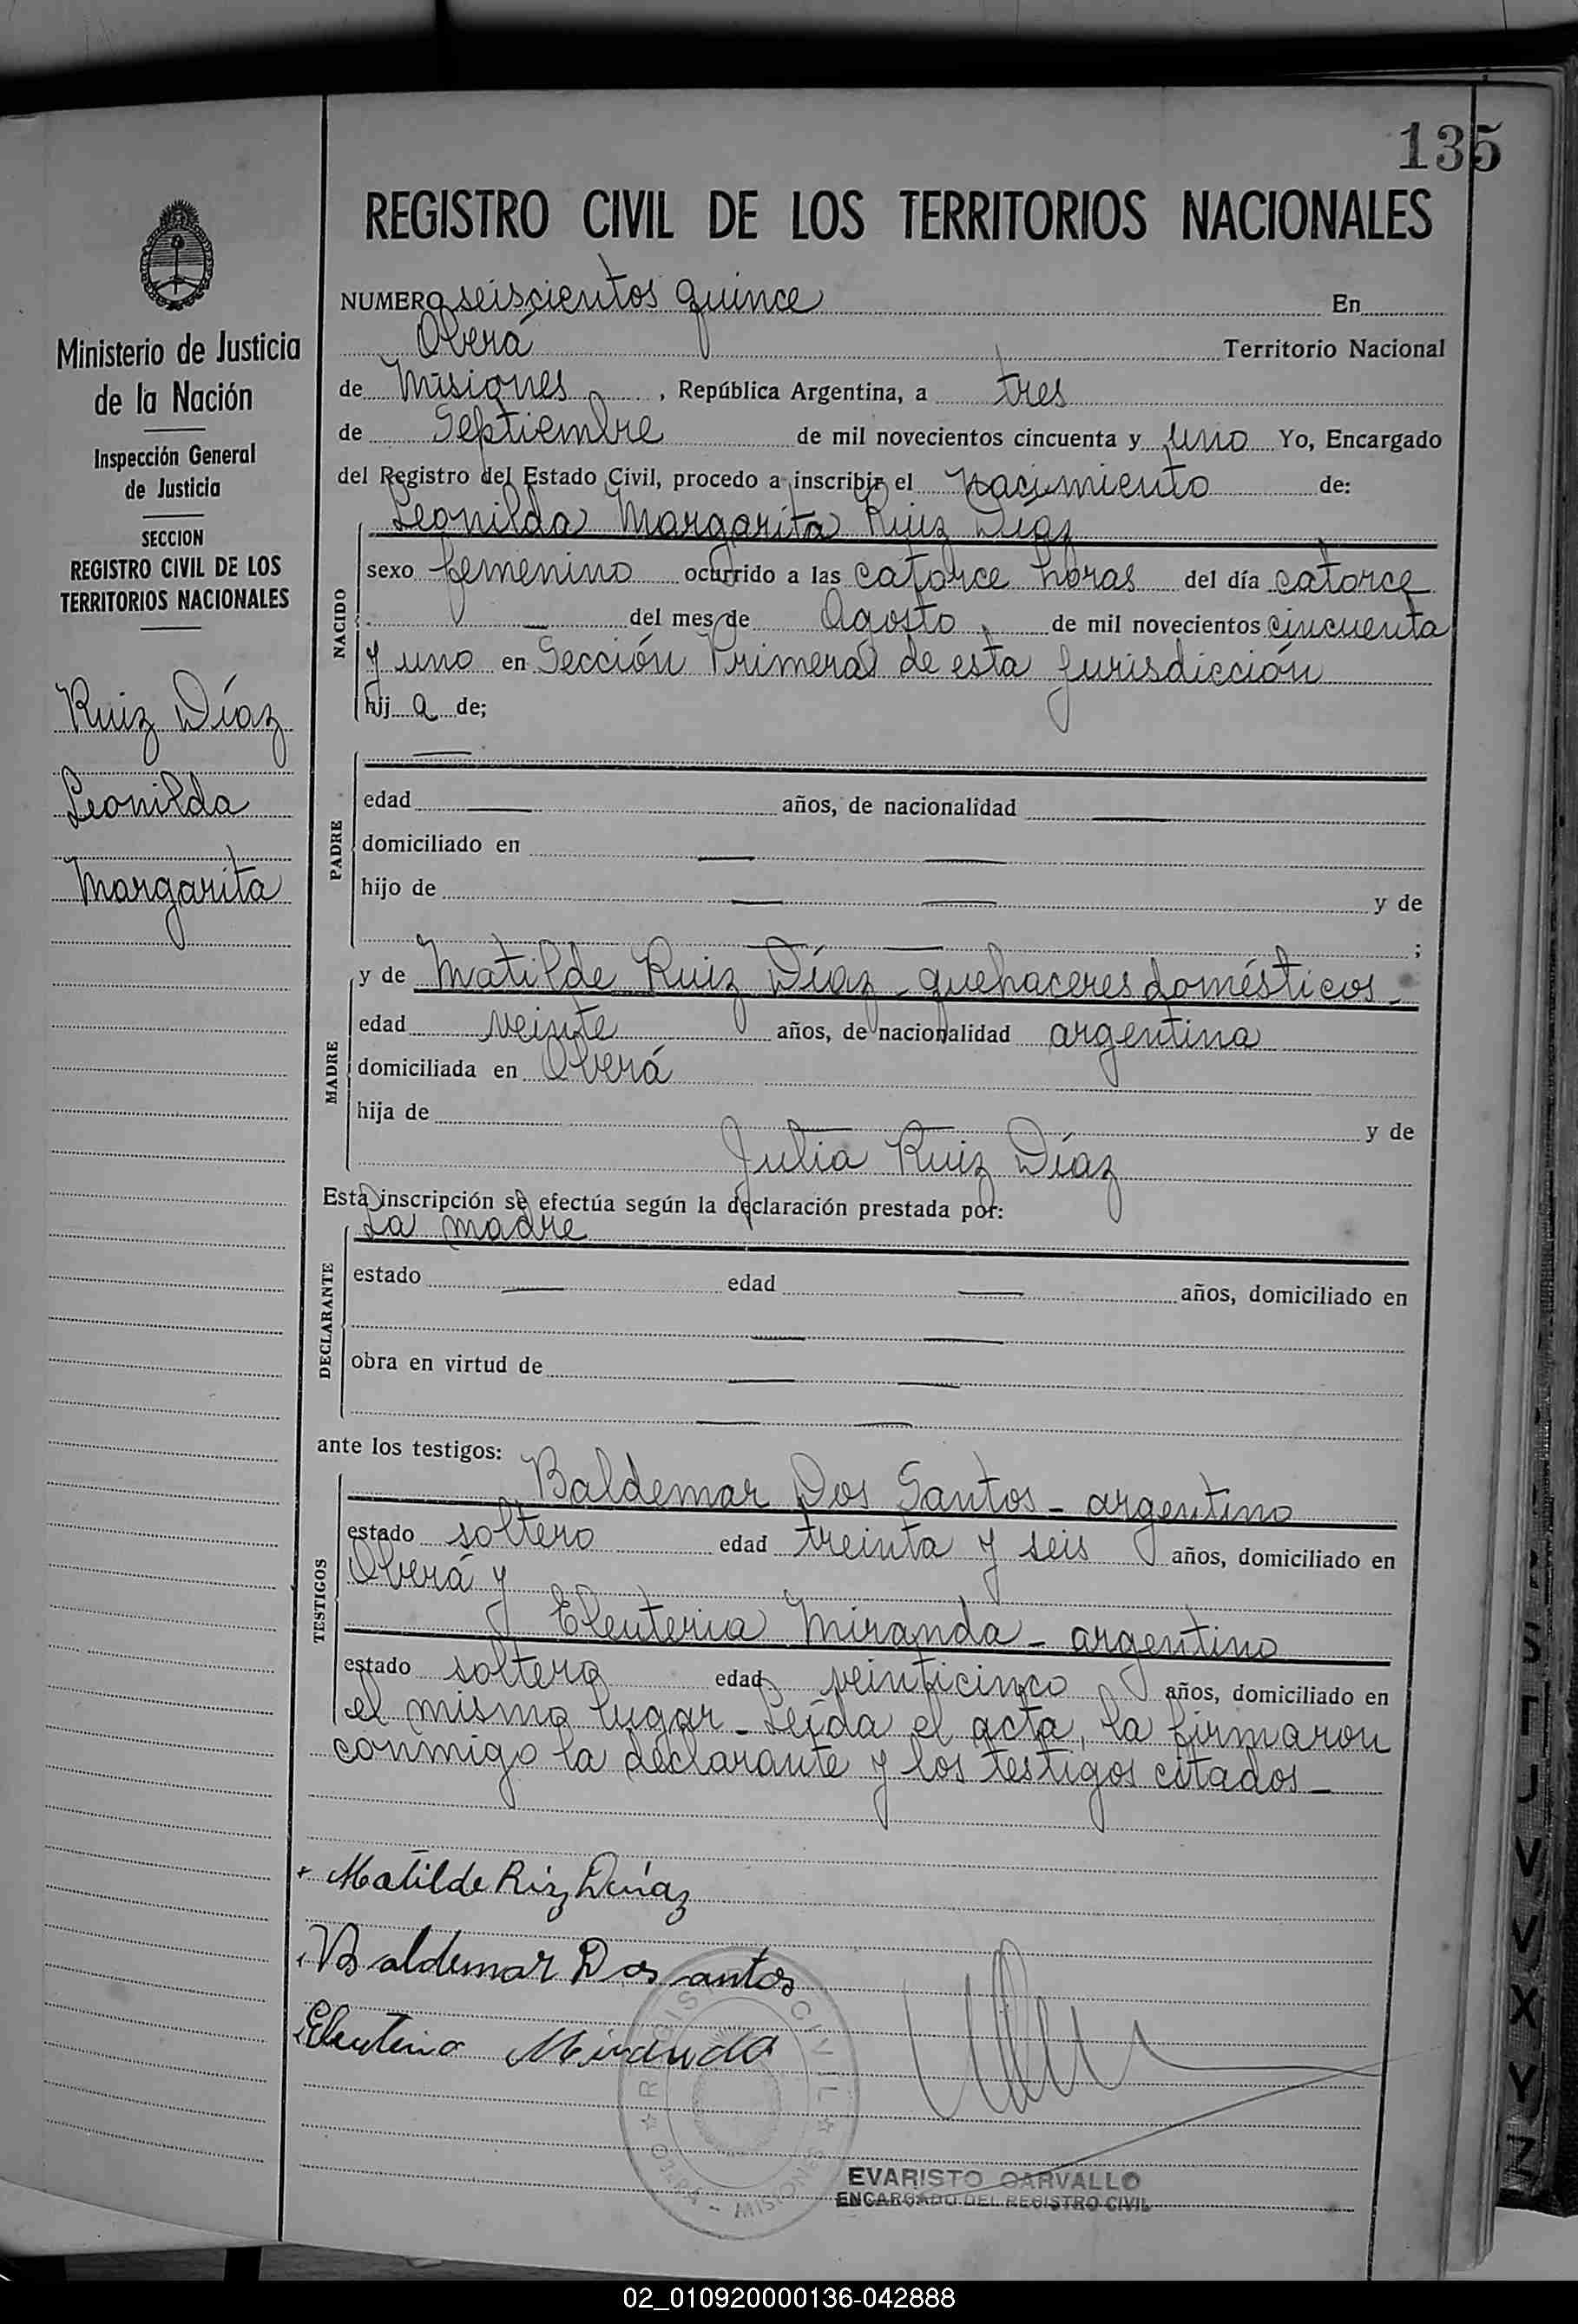 135
REGISTRO CIVIL DE LOS TERRITORIOS NACIONALES
Ministerio de Justicia
de la Nación
Inspección General
de Justicia
SECCION
REGISTRO CIVIL DE LOS
TERRITORIOS NACIONALES
Ruiz Díaz
Leonilda
Margarita
NUMERO seiscientos quince En
Oberá Territorio Nacional
de Misiones, República Argentina, a tres
de Septiembre de mil novecientos cincuenta y uno Yo, Encargado
del Registro del Estado Civil, procedo a inscribir el nacimiento de:
NACIDO
Leonilda Margarita Ruiz Díaz
sexo femenino ocurrido a las catorce horas del día catorce
del mes de Agosto de mil novecientos cincuenta
y uno en Sección Primera de esta jurisdicción
hij a de;
PADRE
edad años, de nacionalidad
domiciliado en
hijo de y de
;
MADRE
y de Matilde Ruiz Díaz - quehaceres domésticos -
edad veinte años, de nacionalidad argentina
domiciliada en Oberá
hija de y de
Julia Ruiz Díaz
Esta inscripción se efectúa según la declaración prestada por:
DECLARANTE
La madre
estado edad años, domiciliado en
obra en virtud de
ante los testigos:
TESTIGOS
Baldemar Dos Santos - argentino
estado soltero edad treinta y seis años, domiciliado en
Oberá y
Eleuteria Miranda - argentino
estado soltera edad veinticinco años, domiciliado en
el mismo lugar - Leída el acta, la firmaron
conmigo la declarante y los testigos citados -
Matilde Riz Diaz
Baldemar Dos antos
Eleuteria Miranda
REGISTRO CIVIL
OBERA - MISIONES
EVARISTO CARVALLO
ENCARGADO DEL REGISTRO CIVIL
S
T
J
V
V
X
Y
Z
02_010920000136-042888